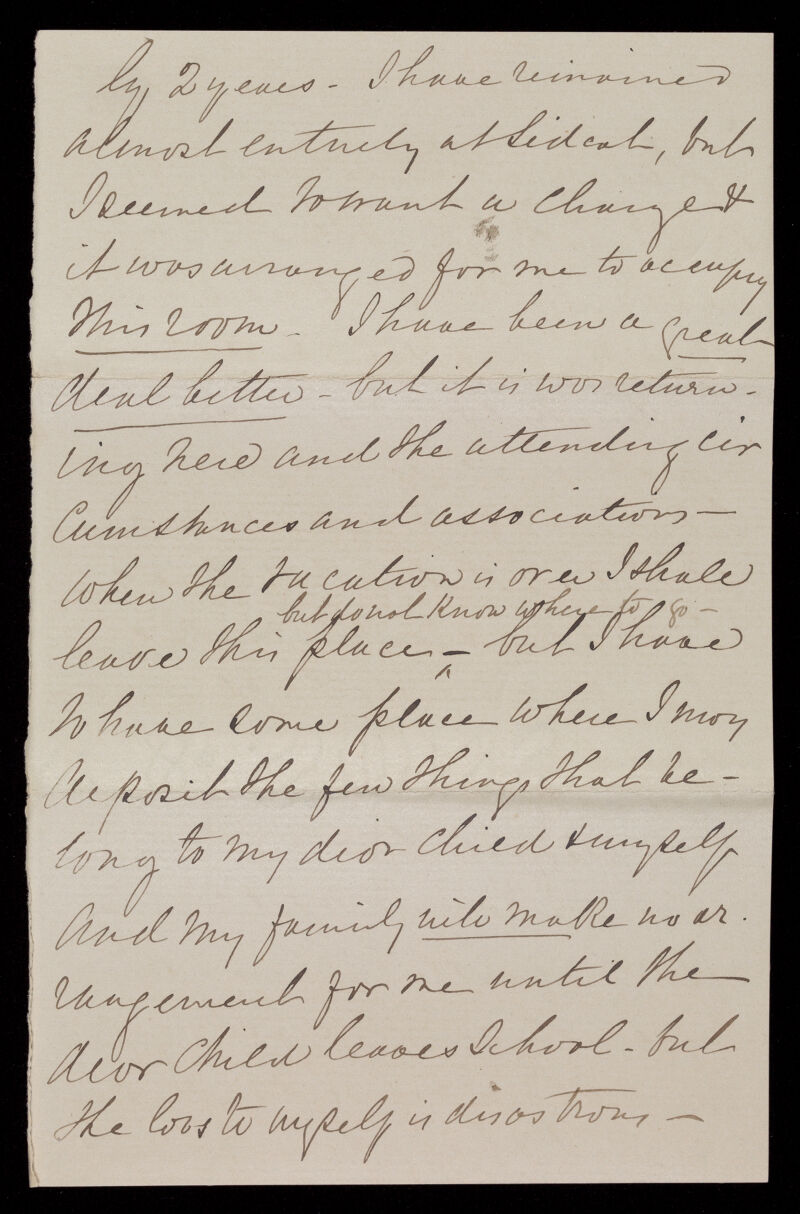 ly 2 years - I have remained
almost entirely at Sidcot, but
I seemed to want a change &
it was arranged for me to occupy
this room - I have been a great
deal better - but it is was return-
ing here and the attending cir
cumstances and associations -
When the vacation is over I shall
but do not know where to go -
leave this place - but I have
to have some place where I may
deposit the few things that be-
long to my dear child & myself
And my family will make no ar-
rangement for me until the
dear child leaves school - but
the loss to myself is disastrous -